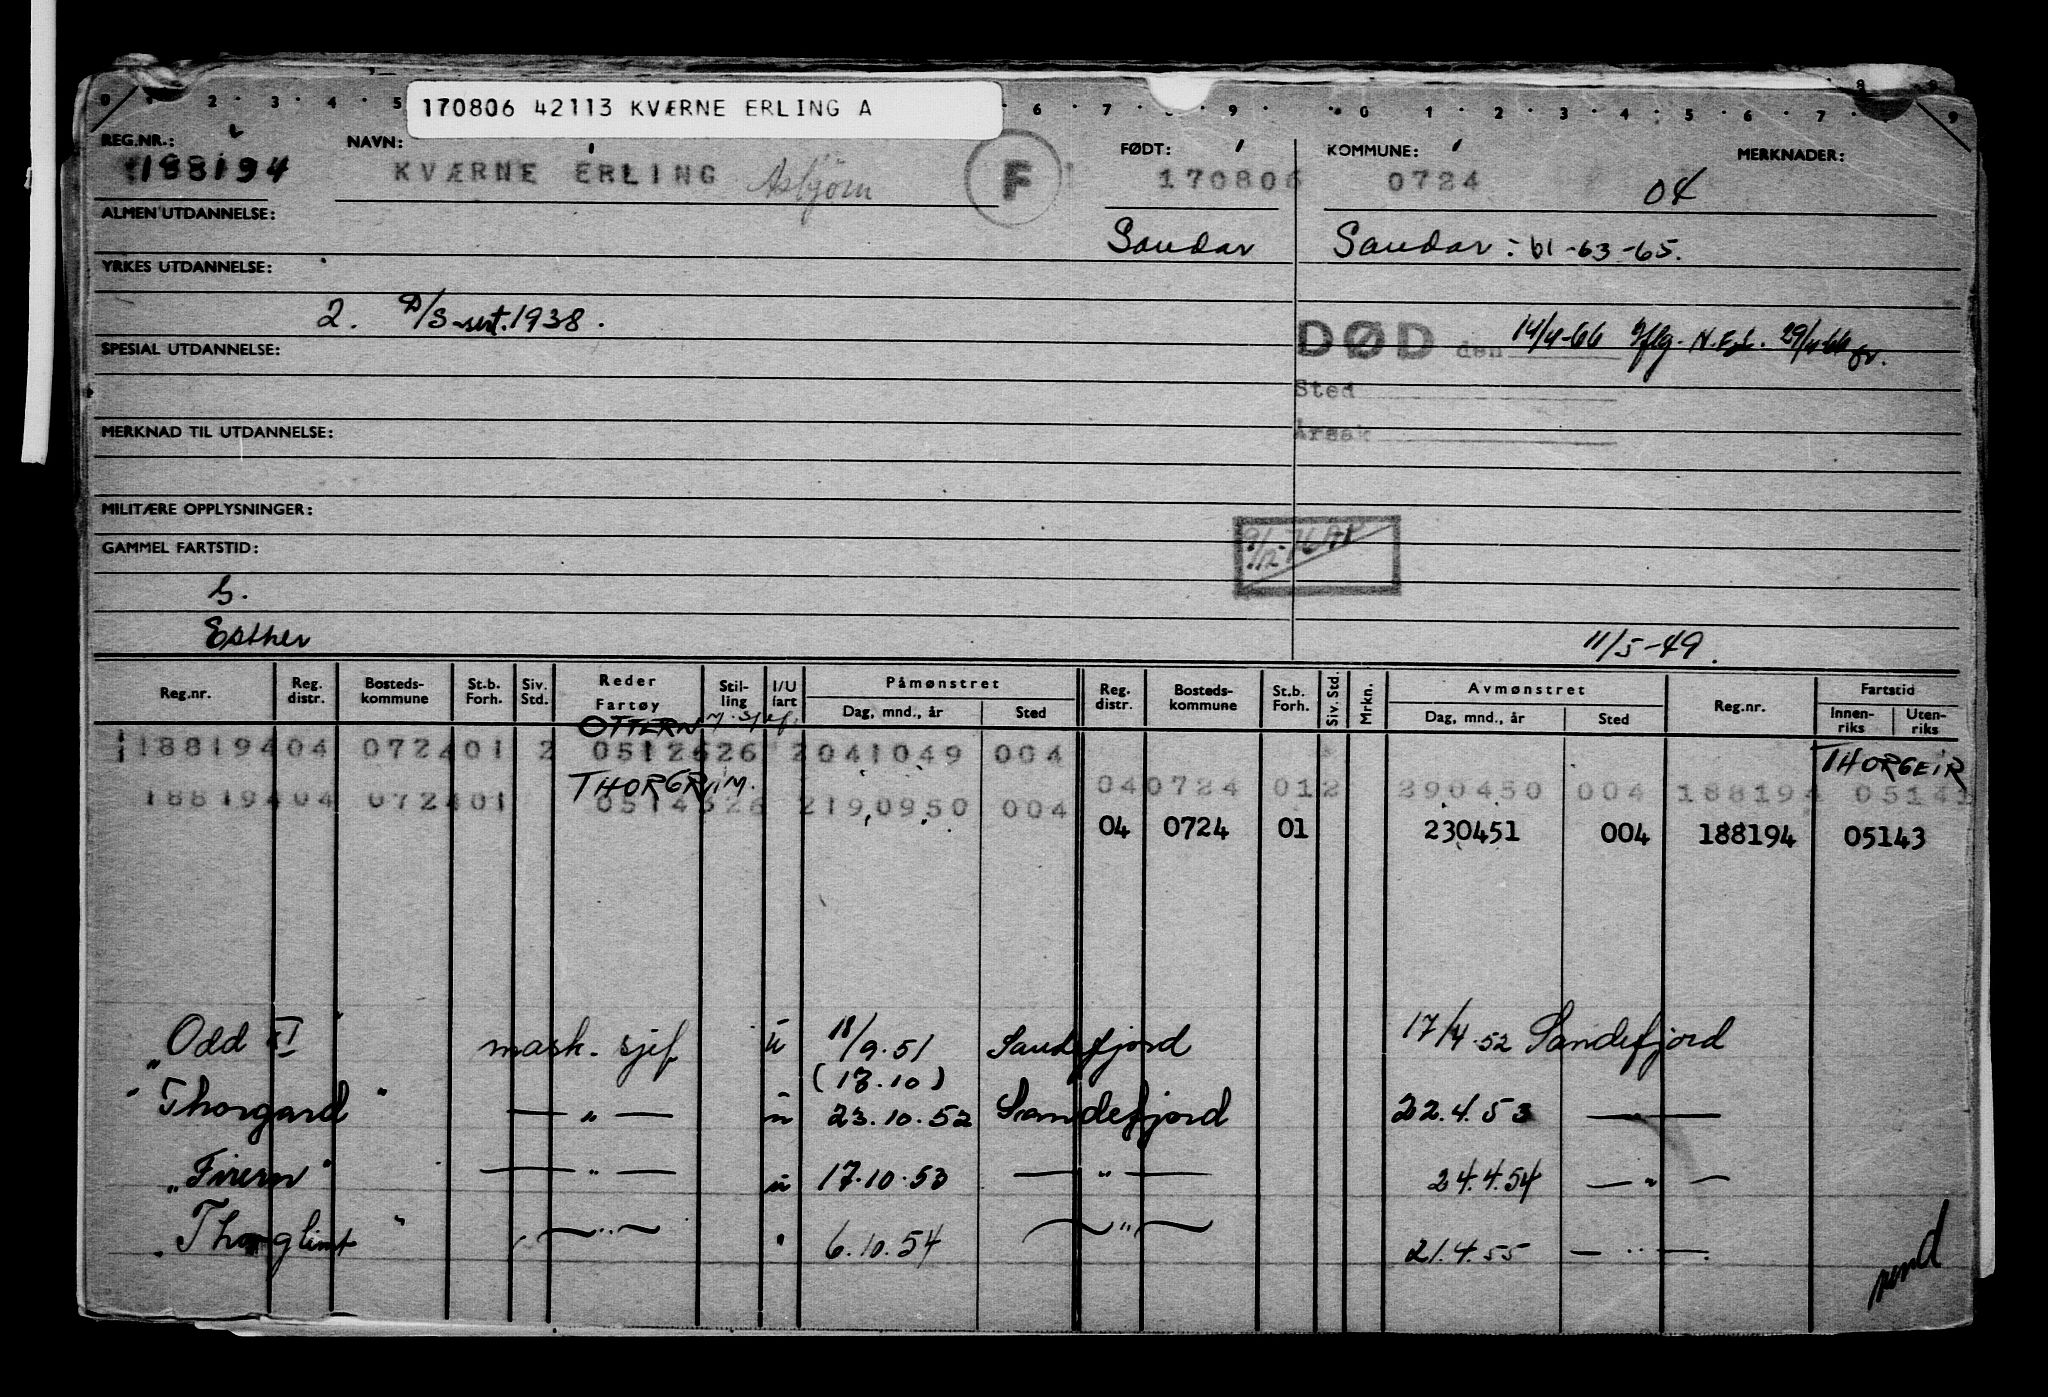 170806 42113 KVÆRNE ERLING A
REG.NR.: NAVN: FØDT: KOMMUNE: MERKNADER:
188194 KVÆRNE ERLING Asbjørn F 170806 0724 04
ALMEN UTDANNELSE:
Sandar Sandar: 61-63-65.
YRKES UTDANNELSE:
2. D/S-sert. 1938.
DØD den 14/4-66 Iflg. 29/4-66
SPESIAL UTDANNELSE:
Sted
MERKNAD TIL UTDANNELSE:
Årsak
MILITÆRE OPPLYSNINGER:
GAMMEL FARTSTID:
9/12-76
S.
Esther 11/5-49.
Reg.nr. Reg. distr. Bosteds-kommune St.b. Forh. Siv. Std. Reder Fartøy Stil-ling I/U fart Påmønstret Dag, mnd., år Sted Reg. distr. Bosteds-kommune St.b. Forh. Siv. Std. Mrkn. Avmønstret Dag, mnd., år Sted Reg.nr. Fartstid Innen-riks Uten-riks
OTTERN M.Sjef.
188194 04 0724 01 2 0512626 2 041049 004 THORGEIR
THORGRIM.
04 0724 01 2 290450 004 188194 05141
188194 04 0724 01 0514326 2 190950 004
04 0724 01 230451 004 188194 05143
"Odd II" mask. sjef ü 18/9.51 Sandefjord 17/4.52 Sandefjord
(13.10)
"Thorgard" — " — ü 23.10.52 Sandefjord 22.4.53 — " —
"Firern" — " — ü 17.10.53 — " — 24.4.54 — " —
"Thorglimt" — " — " 6.10.54 — " — 21.4.55 — " —